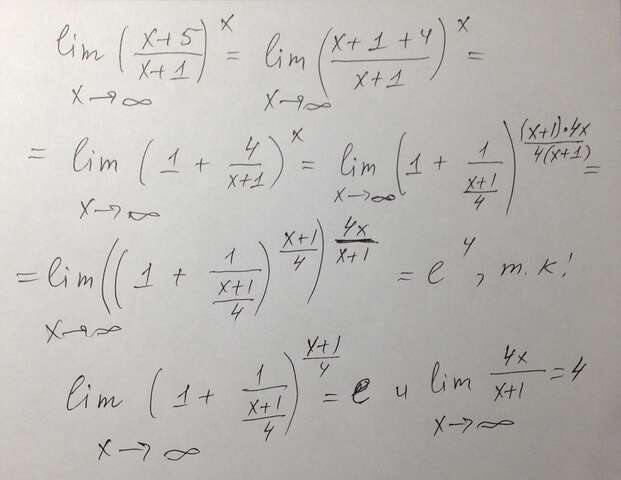 lim x→∞ ((x+5)/(x+1))^x = lim x→∞ ((x+1+4)/(x+1))^x =
= lim x→∞ (1 + 4/(x+1))^x = lim x→∞ (1 + 1/((x+1)/4))^((x+1)·4x/4(x+1)) =
= lim x→∞ ((1 + 1/((x+1)/4))^((x+1)/4))^(4x/(x+1)) = e^4, т.к!
lim x→∞ (1 + 1/((x+1)/4))^((x+1)/4) = e и lim x→∞ 4x/(x+1) = 4